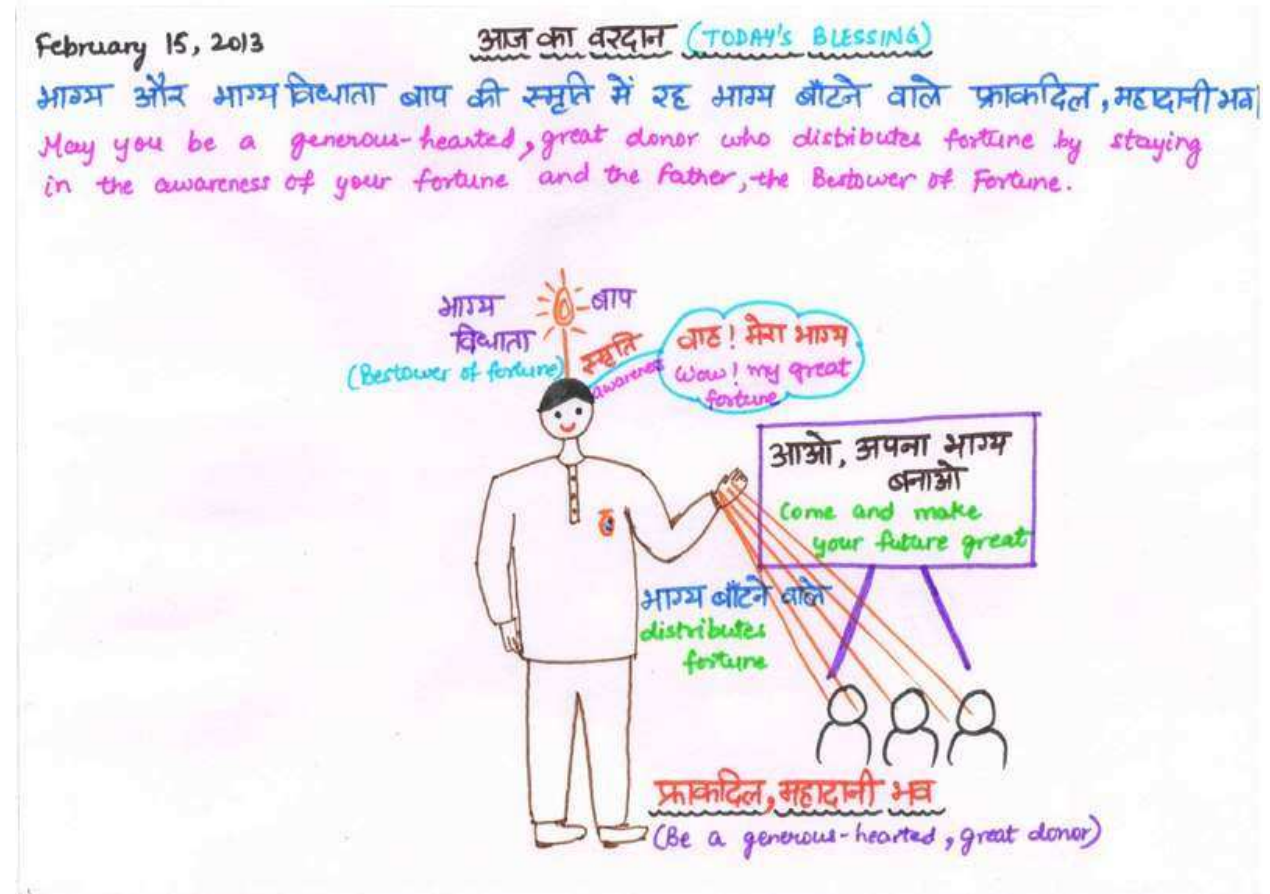 February 15, 2013
आज का वरदान (TODAY'S BLESSING)
भाग्य और भाग्य विधाता बाप की स्मृति में रह भाग्य बाँटने वाले फ्राकदिल, महादानी भव|
May you be a generous-hearted, great donor who distributes fortune by staying
in the awareness of your fortune and the Father, the Bestower of Fortune.
भाग्य
विधाता
बाप
(Bestower of fortune)
स्मृति
awareness
वाह! मेरा भाग्य
Wow! my great
fortune
आओ, अपना भाग्य
बनाओ
Come and make
your future great
भाग्य बाँटने वाले
distributes
fortune
फ्राकदिल, महादानी भव
(Be a generous-hearted, great donor)